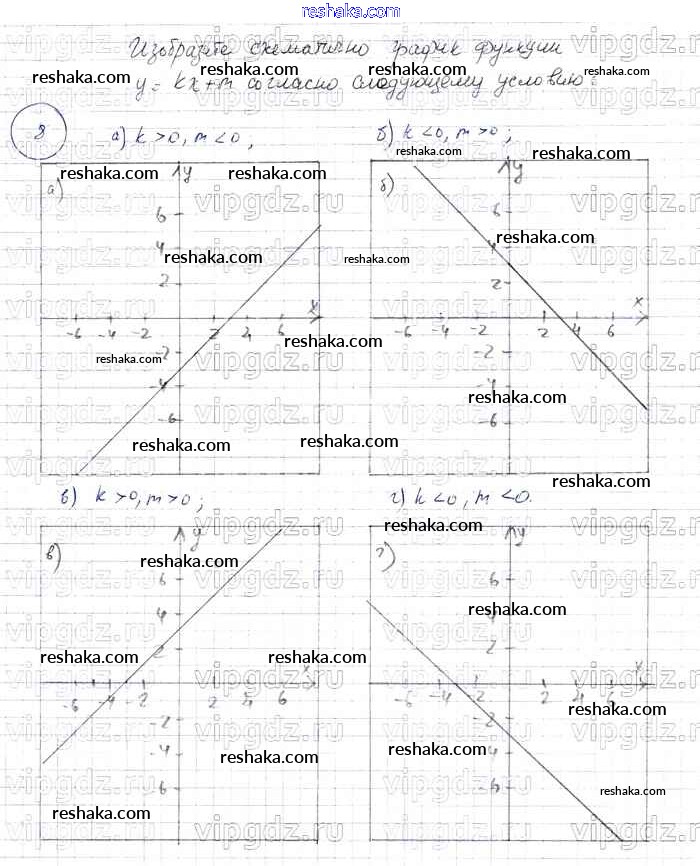 reshaka.com
Изобразите схематично график функции
reshaka.com reshaka.com reshaka.com
y = kx+m согласно следующему условию:
8 а) k >0, m <0, б) k <0, m >0;
reshaka.com reshaka.com
reshaka.com reshaka.com reshaka.com
а) y б) y
6 6
reshaka.com
4 4
reshaka.com reshaka.com
2 2
x x
-6 -4 -2 2 4 6 -6 -4 -2 2 4 6
reshaka.com
-2 -2
reshaka.com
-4 -4
reshaka.com
-6 -6
reshaka.com reshaka.com
reshaka.com
в) k >0, m >0; г) k <0, m <0.
reshaka.com
в) y г) y
reshaka.com
6 6
reshaka.com
4 4
2 2
reshaka.com reshaka.com
x x
-6 -4 -2 2 4 6 -6 -4 -2 2 4 6
reshaka.com
-2 -2
reshaka.com reshaka.com
-4 -4
-6 -6
reshaka.com
reshaka.com
vipgdz.ru